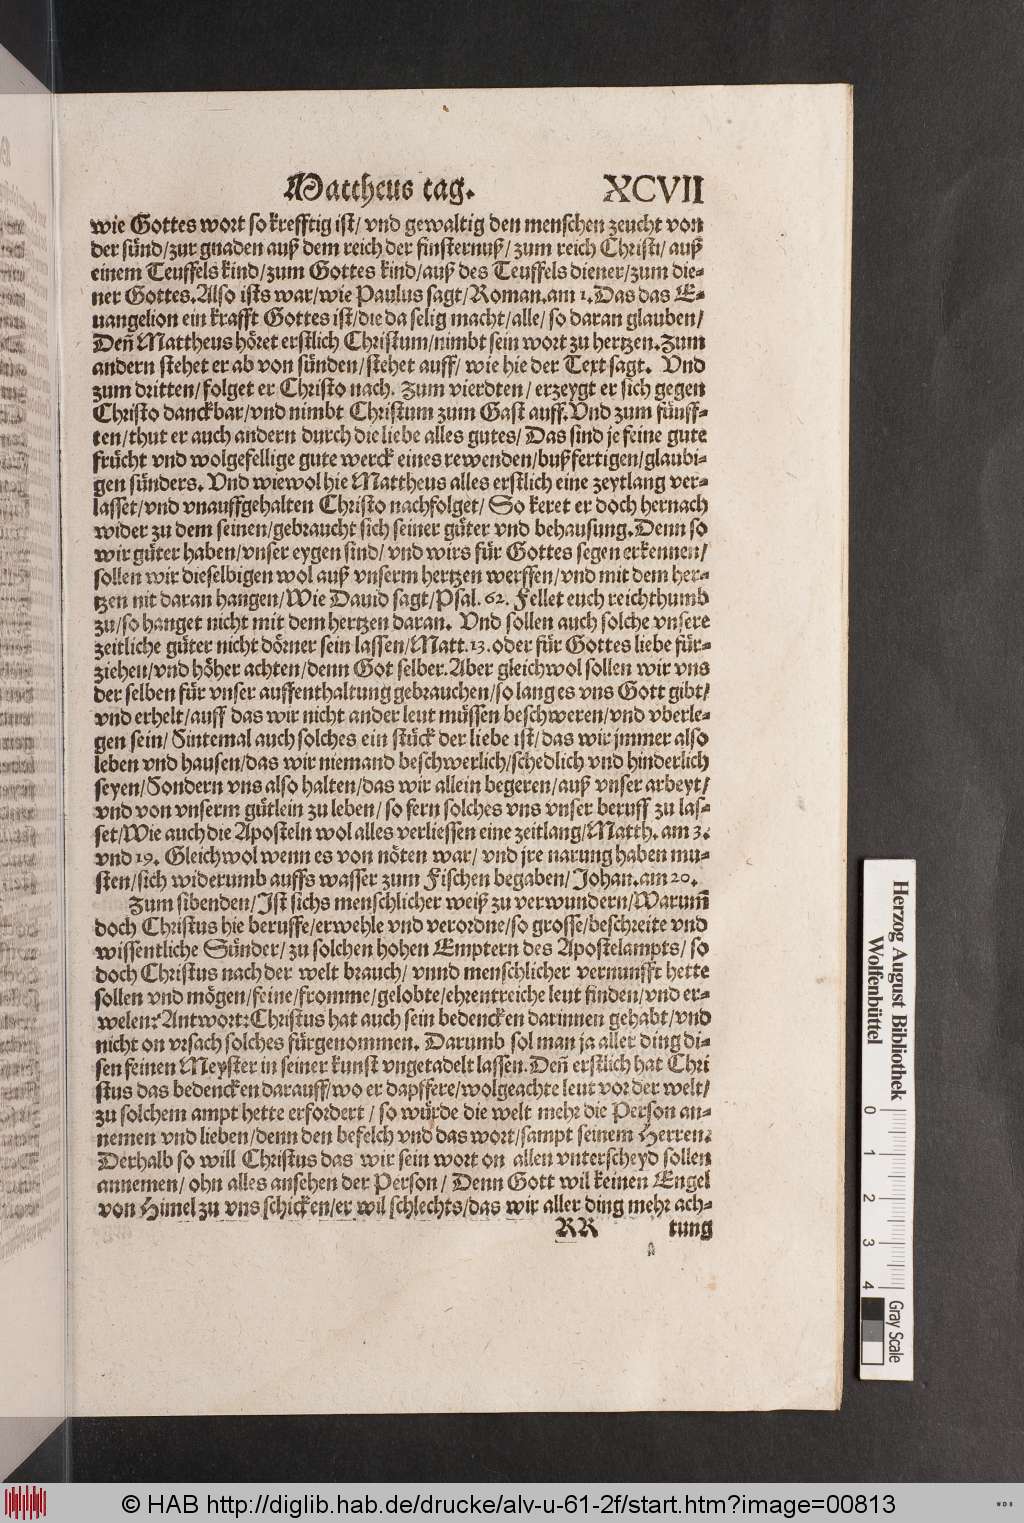 Mattheus tag. XCVII
wie Gottes wort so krefftig ist/ vnd gewaltig den menschen zeucht von
der sünd/zur gnaden auß dem reich der finsternuß/ zum reich Christi/ auß
einem Teuffels kind/zum Gottes kind/auß des Teuffels diener/zum die-
ner Gottes. Also ists war/wie Paulus sagt/Roman. am 1. Das das E-
uangelion ein krafft Gottes ist/die da selig macht/alle/ so daran glauben/
Deñ Mattheus höret erstlich Christum/nimbt sein wort zu hertzen. Zum
andern stehet er ab von sünden/stehet auff/ wie hie der Text sagt. Vnd
zum dritten/folget er Christo nach. Zum vierdten/ erzeygt er sich gegen
Christo danckbar/vnd nimbt Christum zum Gast auff. Vnd zum fünff-
ten/thut er auch andern durch die liebe alles gutes/ Das sind je feine gute
frücht vnd wolgefellige gute werck eines rewenden/bußfertigen/glaubi-
gen sünders. Vnd wiewol hie Mattheus alles erstlich eine zeytlang ver-
lasset/vnd vnauffgehalten Christo nachfolget/ So keret er doch hernach
wider zu dem seinen/gebraucht sich seiner güter vnd behausung. Denn so
wir güter haben/vnser eygen sind/ vnd wirs für Gottes segen erkennen/
sollen wir dieselbigen wol auß vnserm hertzen werffen/vnd mit dem her-
tzen nit daran hangen/Wie Dauid sagt/Psal. 62. Fellet euch reichthumb
zu/so hanget nicht mit dem hertzen daran. Vnd sollen auch solche vnsere
zeitliche güter nicht dörner sein lassen/Matt. 13. oder für Gottes liebe für-
ziehen/vnd höher achten/denn Got selber. Aber gleichwol sollen wir vns
der selben für vnser auffenthaltung gebrauchen/so lang es vns Gott gibt/
vnd erhelt/auff das wir nicht ander leut müssen beschweren/vnd vberle-
gen sein/ Sintemal auch solches ein stück der liebe ist/das wir jmmer also
leben vnd hausen/das wir niemand beschwerlich/schedlich vnd hinderlich
seyen/Sondern vns also halten/das wir allein begeren/auß vnser arbeyt/
vnd von vnserm gütlein zu leben/ so fern solches vns vnser beruff zu las-
set/Wie auch die Aposteln wol alles verliessen eine zeitlang/Matth. am 3.
vnd 19. Gleichwol wenn es von nöten war/ vnd jre narung haben mu-
sten/sich widerumb auffs wasser zum Fischen begaben/Johan. am 20.
Zum sibenden/Ist sichs menschlicher weiß zu verwundern/Warum̃
doch Christus hie beruffe/erwehle vnd verordne/so grosse/beschreite vnd
wissentliche Sünder/ zu solchen hohen Emptern des Apostelampts/ so
doch Christus nach der welt brauch/ vnnd menschlicher vernunfft hette
sollen vnd mögen/feine/fromme/gelobte/ehrentreiche leut finden/vnd er-
welen? Antwort: Christus hat auch sein bedencken darinnen gehabt/vnd
nicht on vrsach solches fürgenommen. Darumb sol man ja aller ding di-
sen feinen Meyster in seiner kunst vngetadelt lassen. Deñ erstlich hat Chri
stus das bedencken darauff/wo er dapffere/wolgeachte leut vor der welt/
zu solchem ampt hette erfordert/ so würde die welt mehr die Person an-
nemen vnd lieben/denn den befelch vnd das wort/sampt seinem Herren:
Derhalb so will Christus das wir sein wort on allen vnterscheyd sollen
annemen/ ohn alles ansehen der Person/ Denn Gott wil keinen Engel
von Himel zu vns schicken/er wil schlechts/das wir aller ding mehr ach-
RR tung
Herzog August Bibliothek
Wolfenbüttel
0 1 2 3 4
Gray Scale
© HAB http://diglib.hab.de/drucke/alv-u-61-2f/start.htm?image=00813